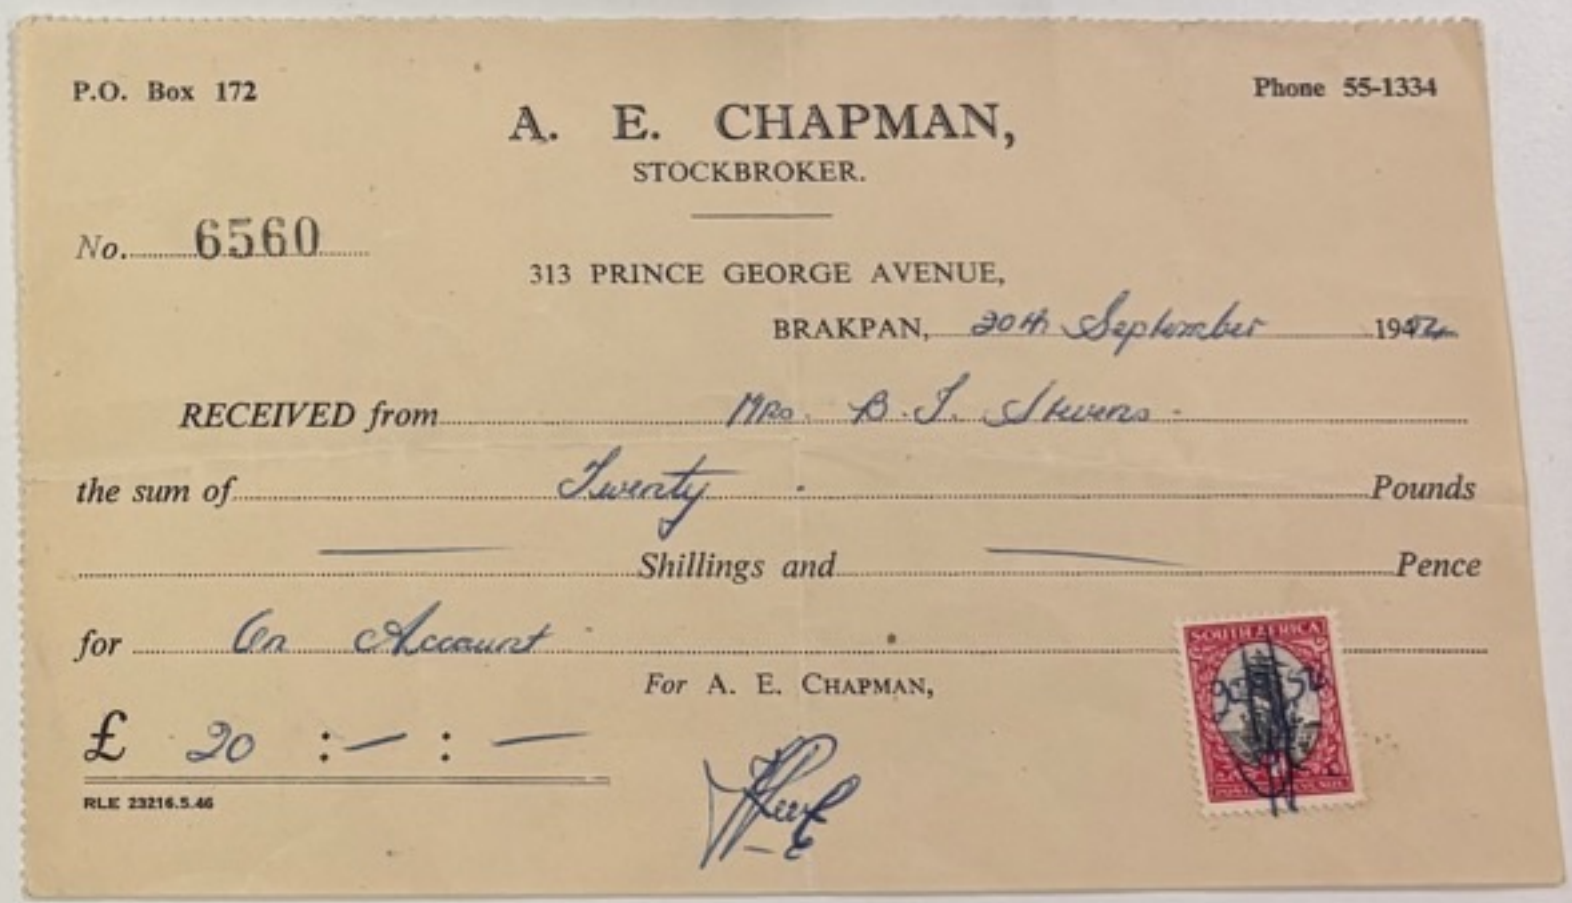 P.O. Box 172
Phone 55-1334
A. E. CHAPMAN,
STOCKBROKER.
No. 6560
313 PRINCE GEORGE AVENUE,
BRAKPAN, 20th September 1954
RECEIVED from Mrs. B. J. Stevens
the sum of Twenty Pounds
— Shillings and — Pence
for On Account
For A. E. CHAPMAN,
£ 20 : — : —
RLE 23216.5.46
SOUTH AFRICA